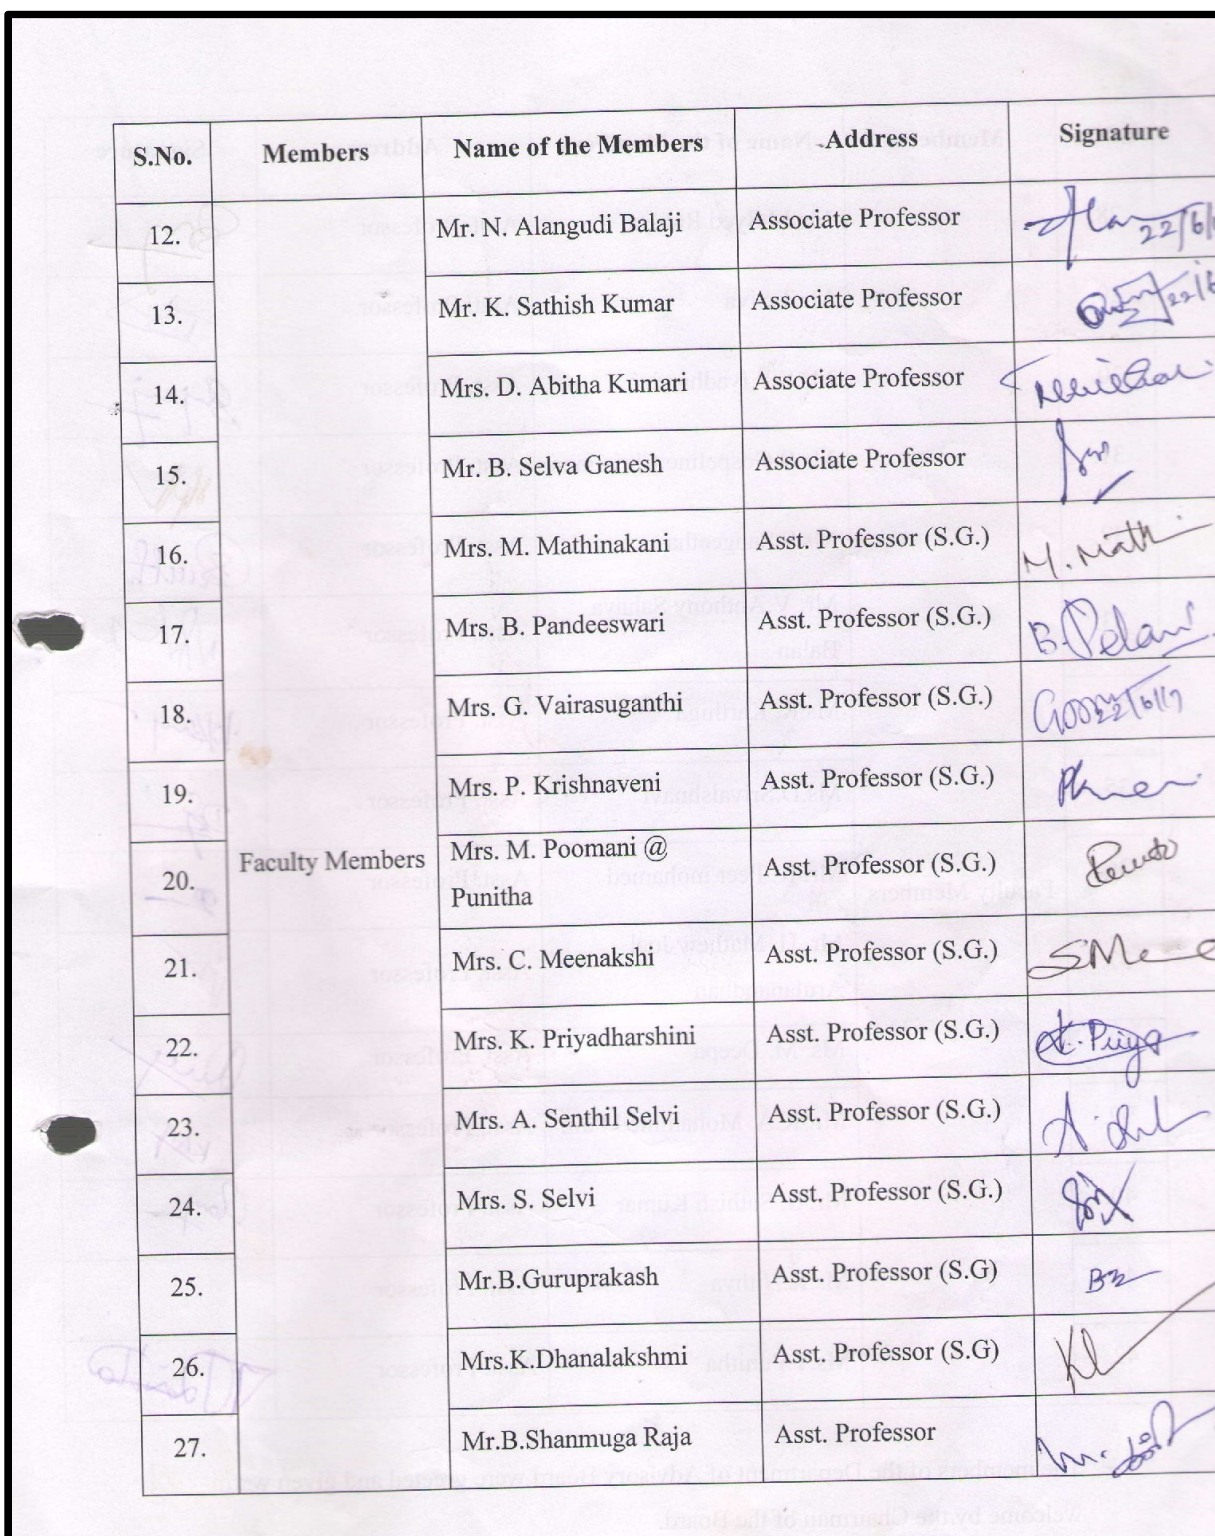 S.No. Members Name of the Members Address Signature
12. Mr. N. Alangudi Balaji Associate Professor 22/6/
13. Mr. K. Sathish Kumar Associate Professor 22/6
14. Mrs. D. Abitha Kumari Associate Professor
15. Mr. B. Selva Ganesh Associate Professor
16. Mrs. M. Mathinakani Asst. Professor (S.G.) M. Math
17. Mrs. B. Pandeeswari Asst. Professor (S.G.)
18. Mrs. G. Vairasuganthi Asst. Professor (S.G.) 22/6/17
19. Mrs. P. Krishnaveni Asst. Professor (S.G.)
Faculty Members
20. Mrs. M. Poomani @ Asst. Professor (S.G.)
Punitha
21. Mrs. C. Meenakshi Asst. Professor (S.G.)
22. Mrs. K. Priyadharshini Asst. Professor (S.G.) K. Priya
23. Mrs. A. Senthil Selvi Asst. Professor (S.G.)
24. Mrs. S. Selvi Asst. Professor (S.G.)
25. Mr.B.Guruprakash Asst. Professor (S.G)
26. Mrs.K.Dhanalakshmi Asst. Professor (S.G)
27. Mr.B.Shanmuga Raja Asst. Professor